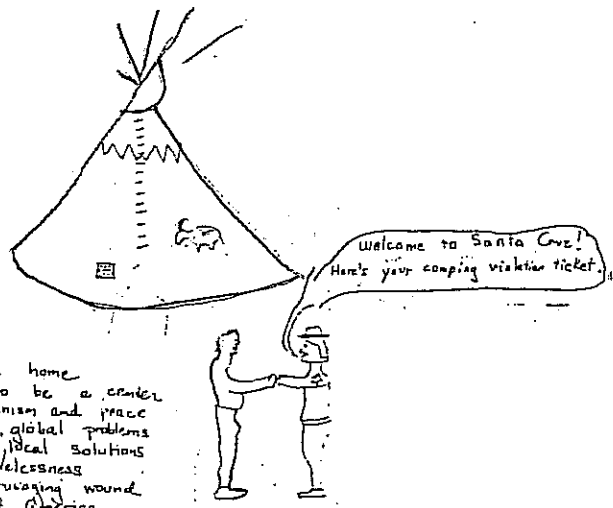 Welcome to Santa Cruz!
Here's your camping violation ticket.
home
to be a center
nism and peace
global problems
local solutions
elessness
wound